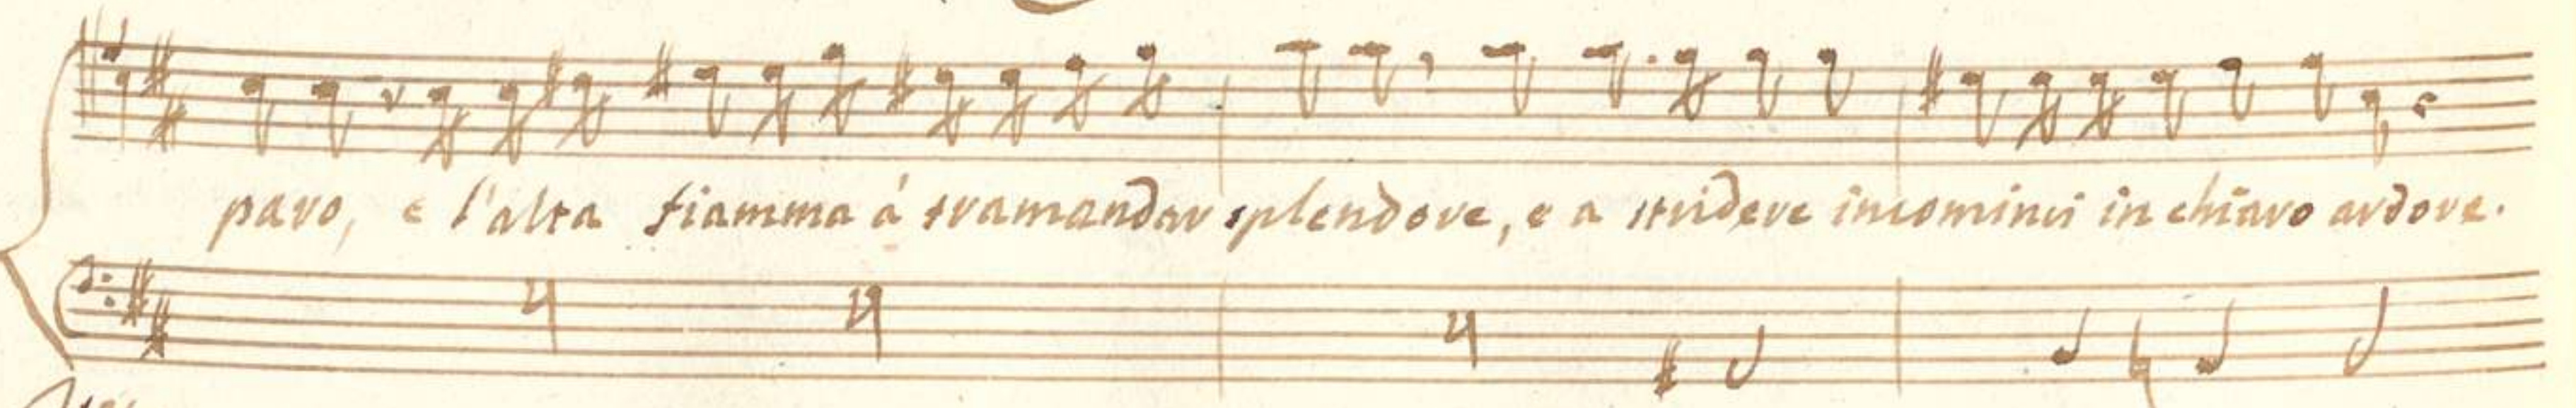 paro, e l'alta fiamma á tramandar splendore, e a stridere incominci in chiaro ardore.